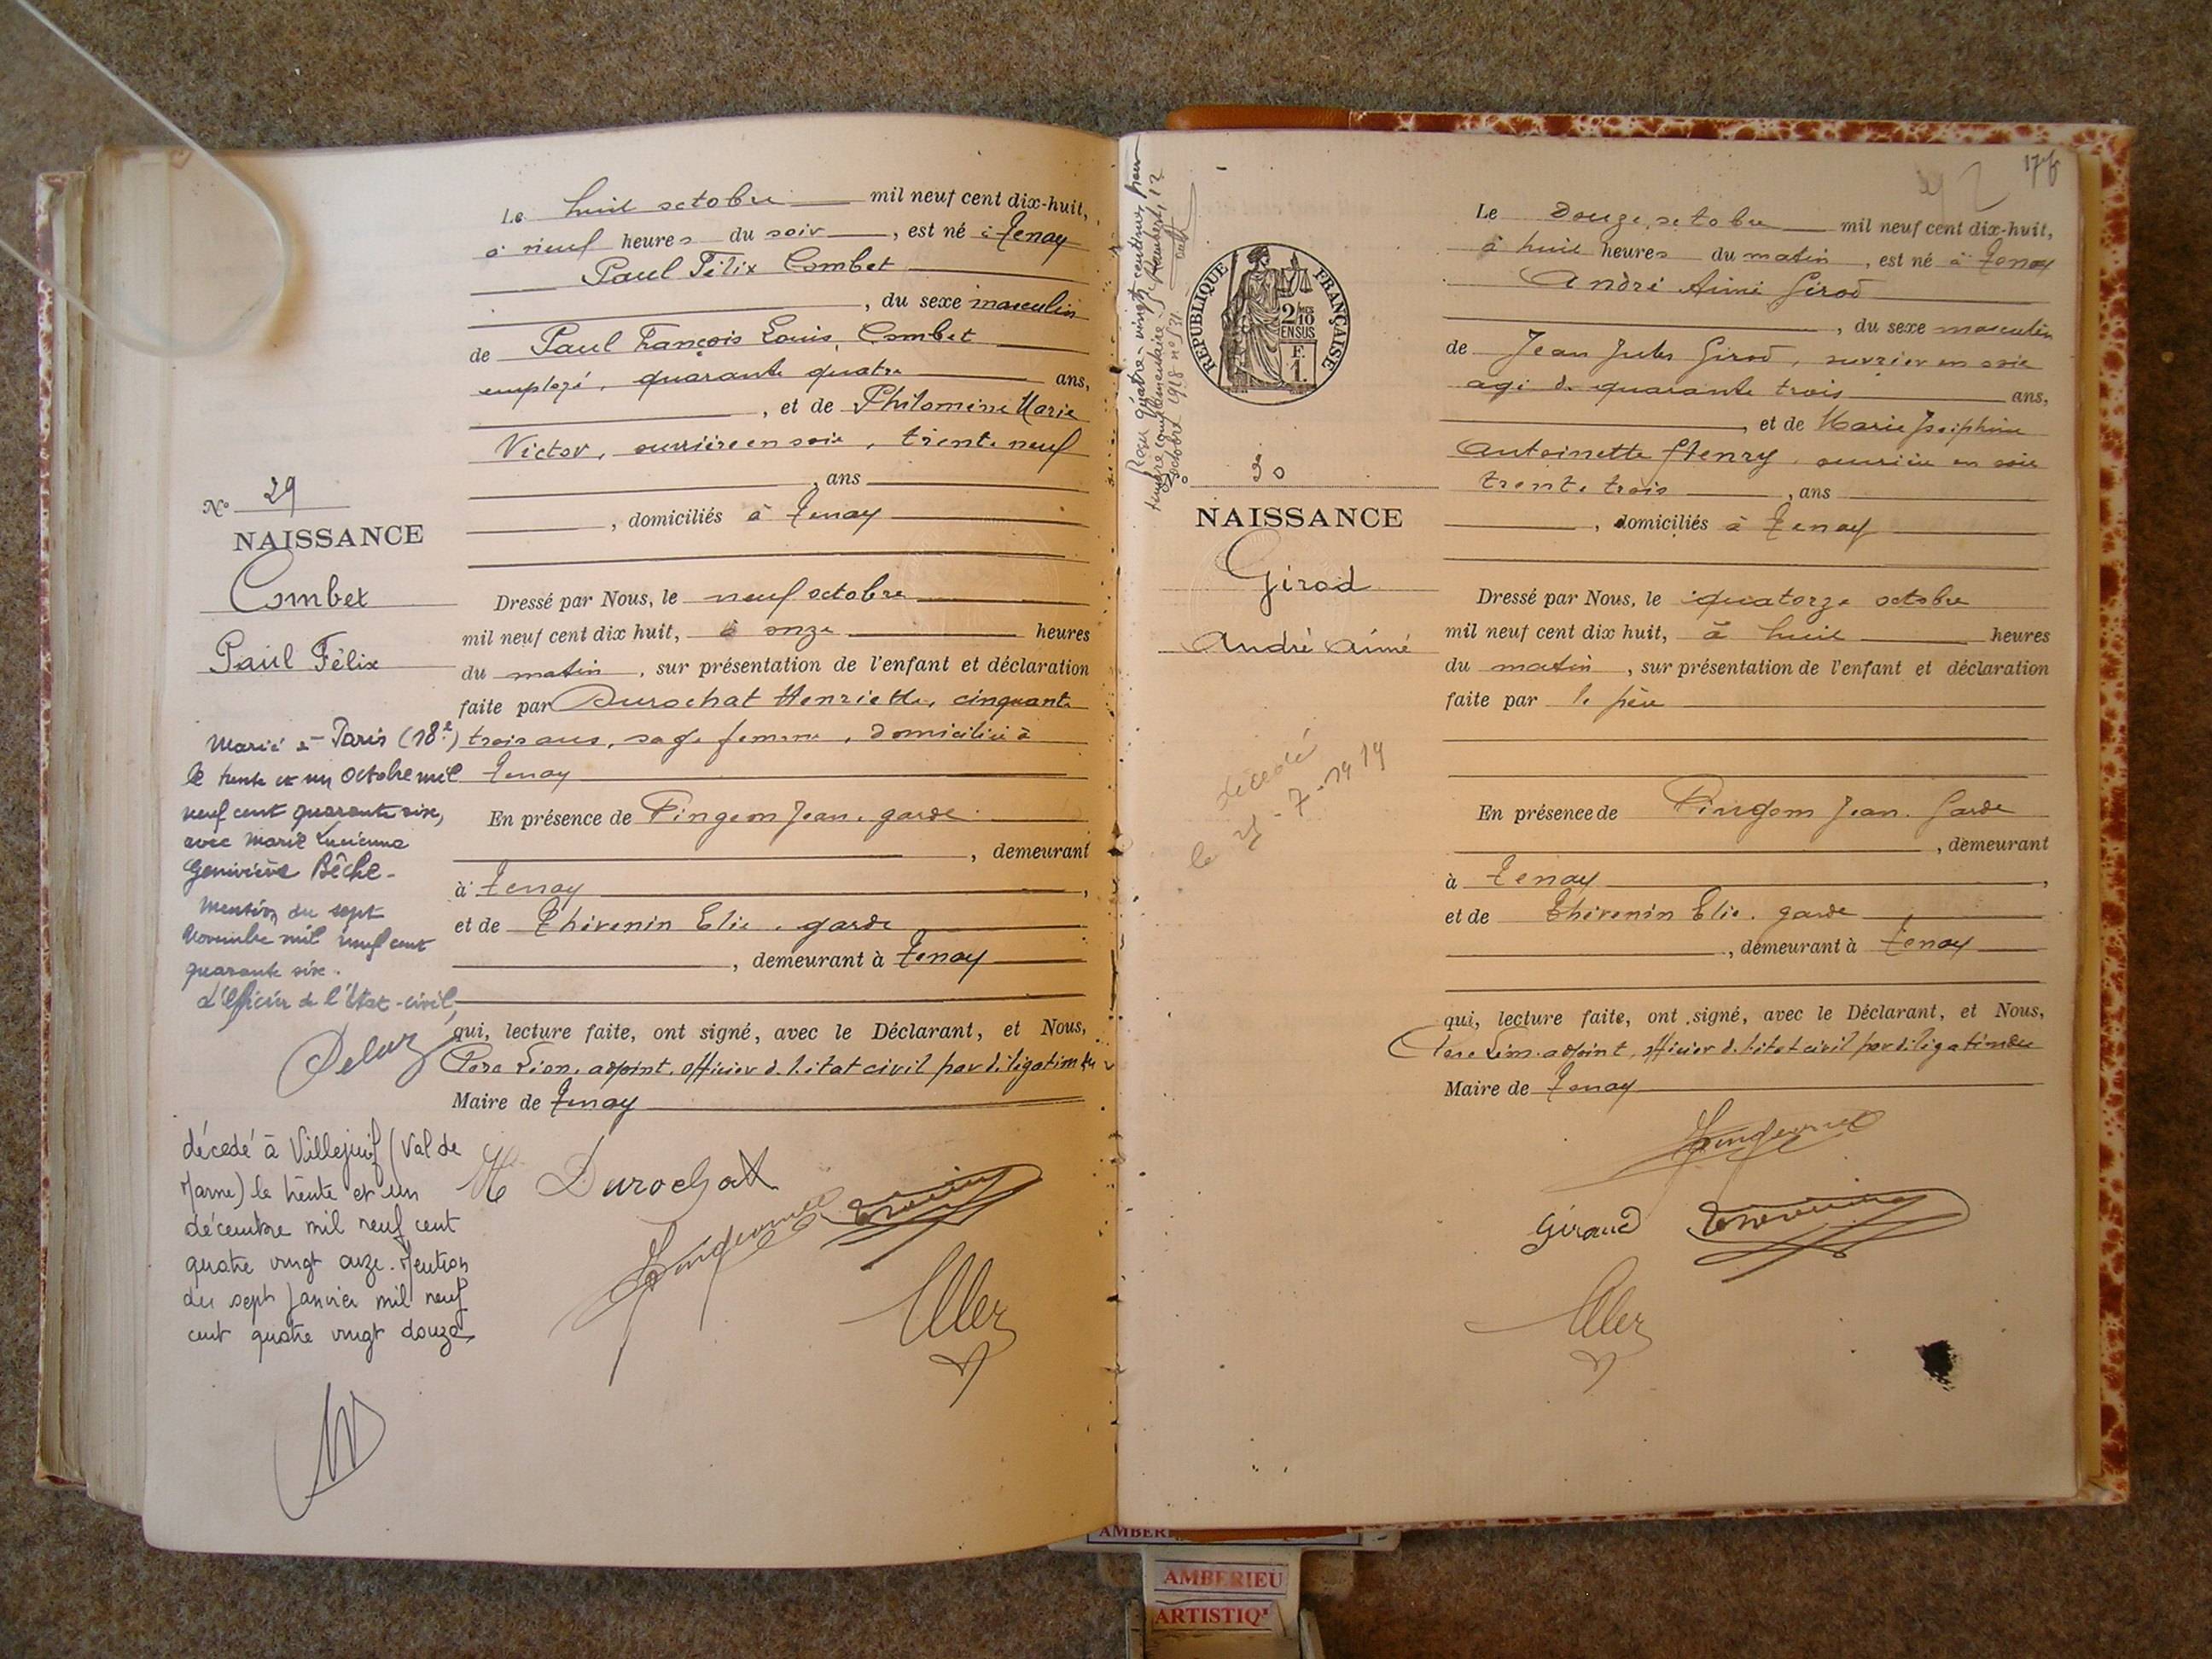 Le huit octobre mil neuf cent dix-huit,
à neuf heures du soir, est né à Tenay
Paul Félix Combet
, du sexe masculin
de Paul François Louis, Combet
employé, quarante quatre ans,
, et de Philomène Marie
Victor, ouvrière en soie, trente neuf
, ans
, domiciliés à Tenay
Dressé par Nous, le neuf octobre
mil neuf cent dix huit, à onze heures
du matin, sur présentation de l'enfant et déclaration
faite par Durochat Henriette, cinquante
trois ans, sage femme, domiciliée à
Tenay
En présence de Pingeon Jean, garde
, demeurant
à Tenay,
et de Thévenin Elie, garde
, demeurant à Tenay
qui, lecture faite, ont signé, avec le Déclarant, et Nous,
adjoint, officier de l'état civil par délégation du
Maire de Tenay
H Durochat
N° 29
NAISSANCE
Combet
Paul Félix
Marié à Paris (18e)
le trente et un octobre mil
neuf cent quarante six,
avec Marie Lucienne
Geneviève Bêche -
Mention du sept
Novembre mil neuf cent
quarante six.
L'officier de l'état-civil,
décédé à Villejuif (Val de
Marne) le trente et un
décembre mil neuf cent
quatre vingt onze. Mention
du sept Janvier mil neuf
cent quatre vingt douze
176
RÉPUBLIQUE FRANÇAISE
2/10 EN SUS
F.
1.
30
NAISSANCE
Girod
André Aimé
décédé
le 25-7-1919
Le Douze octobre mil neuf cent dix-huit,
à huit heures du matin, est né à Tenay
André Aimé Girod
, du sexe masculin
de Jean Jules Girod, ouvrier en soie
agé de quarante trois ans,
, et de Marie Joséphine
Antoinette Henry, ouvrière en soie
trente trois, ans
, domiciliés à Tenay
Dressé par Nous, le quatorze octobre
mil neuf cent dix huit, à huit heures
du matin, sur présentation de l'enfant et déclaration
faite par le père
En présence de Pingeon Jean. Garde
, demeurant
à Tenay,
et de Thévenin Elie. garde
, demeurant à Tenay
qui, lecture faite, ont signé, avec le Déclarant, et Nous,
adjoint, officier de l'état civil par délégation du
Maire de Tenay
Giraud
AMBERIEU
ARTISTIQ